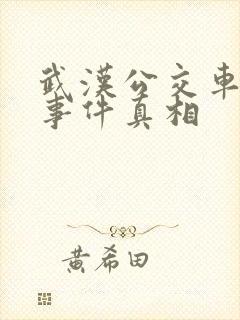 武漢公交車
事件真相
黄希田